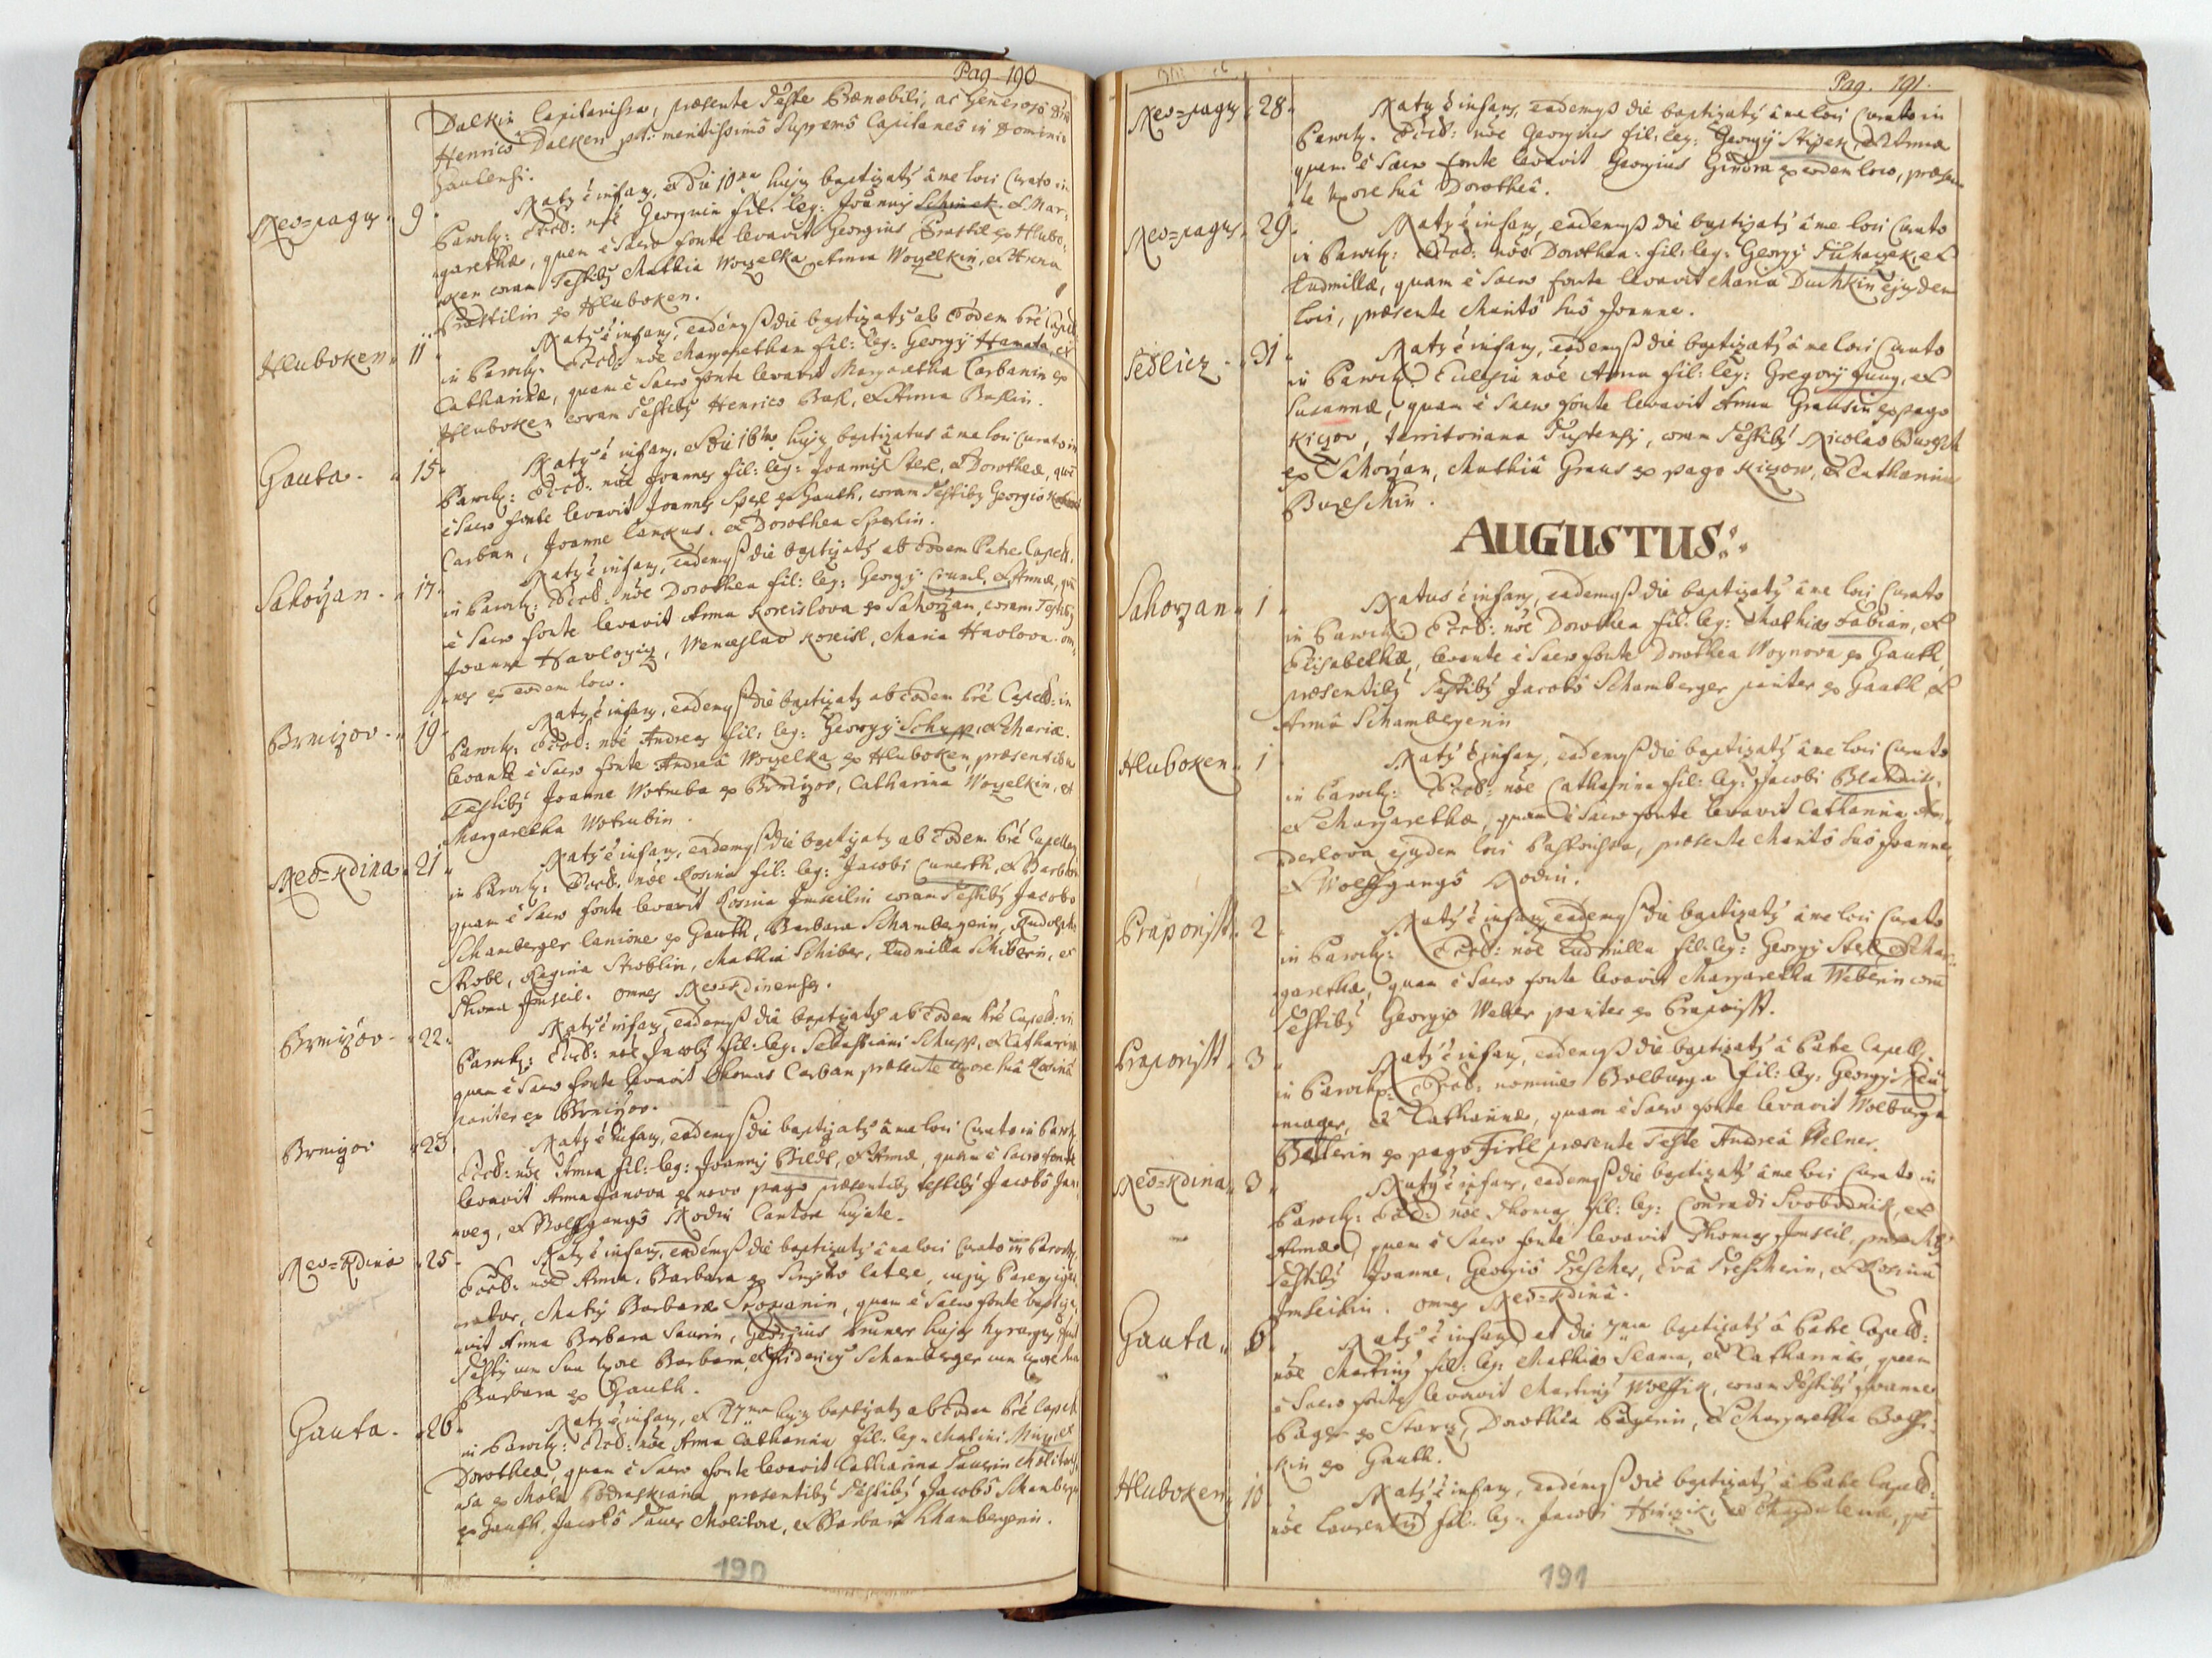 Pag 190
Dalkin Capitanissa, præsente Teste Prænobili, ac Generoso
Henrico Dalken pt: meritissimô Supremô Capitaneô in Dominio
Gautensi.
Neo=pagus 9 Natus é infans, et die 10ma hujus baptizatus â me loci Curato in
Paroch: Eccl: nõe Georgium fil: leg: Joannis Schmiek et Mar=
garethæ, quem è Sacro fonte levavit Georgius Prastil ex Hlubo=
ken coram Testibus Mathia Woyelka et Anna Woyelkin, et Anna
Prastilin ex Hluboken.
Hluboken 11 Natus é infans, eademque die baptizatus ab Eodem Pre Capell:
in Paroch: Eccl: nõe Margaretham fil: leg: Georgij Hanata, et
Catharinæ, quam è Sacro fonte levavit Margaretha Carbanin ex
Hluboken coram Testibus Henrico Bast, et Anna Bastin.
Gauta 15 Natus é infans, et die 16ta hujus baptizatus â me loci Curato in
Paroch: Eccl: nõe Joannes fil: leg: Joannis Sterl, et Dorotheæ, quẽ
è Sacro fonte levavit Joannes Sperl ex Gauth, coram Testibus Georgio
Carban, Joanne Lankus, et Dorothea Sperlin.
Sahorzan 17 Natus é infans, eademque die baptizatus ab Eodem Patre Capell:
in Paroch: Eccl: nõe Dorothea fil: leg: Georgij Crund, et Annæ, quã
è Sacro fonte levavit Anna Koreislova ex Sahorzan, coram Testibus
Joanne Havlozig, Wenceslao Koreisl, Maria Havlova om=
nes ex eodem loco.
Brnirzov 19 Natus é infans, eademque die baptizatus ab Eodem Pre Capell: in
Paroch: Eccl: nõe Andreas fil: leg: Georgij Schupp, et Mariæ.
levante è Sacro fonte Andreâ Woyelka ex Hluboken, præsentibus
Testibus Joanne Wotruba ex Brnirzov, Catharina Woyelkin, et
Margaretha Wotrubin.
Neo=Kdina 21 Natus é infans, eademque die baptizatus ab Eodem Pre Capellano
in Paroch: Eccl: nõe Rosina fil: leg: Jacobi Cunerth, et Barbaræ
quam è Sacro fonte levavit Rosina Imseilin coram Testibus Jacobo
Schamberger Lanione ex Gauth, Barbara Schambergerin, Rudolpho
Strobl, Regina Stroblin, Mathia Schiber, Ludmilla Schiberin, et
Thoma Imseil. omnes Neo=Kdinenses.
Brnirzov 22 Natus é infans, eademque die baptizatus ab Eodem Pre Capell: in
Paroch: Eccl: nõe Jacobus fil: leg: Sebastiani Schupp, et Catharinæ
quem è Sacro fonte levavit Thomas Carban præsente Uxore suâ Rosinâ
pariter ex Brnirzov.
Brnirzov 23 Natus é infans, eademque die baptizatus â me loci Curato in Paroch:
Eccl: nõe Anna fil: leg: Joannis Bildt, et Annæ, quam è Sacro fonte
levavit Anna Janova ex novo pago præsentibus testibus Jacobô
weg, et Wolffgangô Rodin Cantore hujate.
Neo=Kdina 25 Natus é infans, eademque die baptizatus â me loci Curato in Paroch:
Eccl: nõe Anna Barbara ex latere, cujus Parens igno=
ratur, Matris Barbaræ Propanin, quam è Sacro fonte
levavit Anna Barbara Saurin, Georgius Bruner hujus
Testes cum Sua Uxore Barbara, et Fridericus Schamberger cum Uxore sua
Barbara ex Gauth.
Gauta 26 Natus é infans, et 27ma hujus baptizatus ab Eodem Pre Capell:
in Paroch: Eccl: nõe Anna Catharina fil: leg: Martini et
Dorotheæ, quam è Sacro fonte levavit Catharina Taurin Molitoris=
sa ex Mola Podraskiana, præsentibus Testibus Jacobô Schamberger
ex Gauth, Jacobô Tauer Molitore, et Barbarâ Schambergerin.
190
Pag. 191.
Neo=pagus 28 Natus é infans, eademque die baptizatus â me loci Curato in
Paroch: Eccl: nõe Georgius fil: leg: Georgij Stipek, et Annæ
quem è Sacro fonte levavit Georgius Gindra ex eodem loco, præsen=
te Uxore suâ Dorotheâ.
Neo=pagus 29 Natus é infans, eademque die baptizatus â me loci Curato
in Paroch: Eccl: nõe Dorothea fil: leg: Georgij Tuhaczek, et
Ludmillæ, quam è Sacro fonte levavit Maria Duchkin ejusdem
loci, præsente Maritô Suô Joanne.
Sedlicz 31 Natus é infans, eademque die baptizatus â me loci Curato
in Paroch: Ecclesia nõe Anna fil: leg: Gregorij Jung, et
Susannæ, quam è Sacro fonte levavit Anna Grausin ex pago
Kiczov, territoriana Tustensis, coram Testibus Nicolao Buresch
ex Sahorzan, Mathiâ Graus ex pago Kiczow, et Catharina
Bureschin.
AUGUSTUS.
Sahorzan 1 Natus é infans, eademque die baptizatus â me loci Curato
in Paroch: Eccl: nõe Dorothea fil: leg: Mathiæ Fabian, et
Elisabethæ, levante è Sacro fonte Dorothea Woynova ex Gauth,
præsentibus Testibus Jacobô Schamberger pariter ex Gauth et
Annâ Schambergerin
Hluboken 1 Natus é infans, eademque die baptizatus â me loci Curato
in Paroch: Eccl: nõe Catharina fil: leg: Jacobi Blandik,
et Margarethæ, quam è Sacro fonte levavit Catharina An=
derlova ejusdem loci Pastorissa, præsente Maritô Suô Joanne,
et Wolffgangô Rodin.
Praporisst 2 Natus é infans, eademque die baptizatus â me loci Curato
in Paroch: Eccl: nõe Ludmilla fil: leg: Georgij Sterl, et Mar=
garethæ, quam è Sacro fonte levavit Margaretha Weberin corã
Testibus Georgio Weber pariter ex Praporisst.
Praporisst 3 Natus é infans, eademque die baptizatus â Patre Capell:
in Paroch: Eccl: nomine Wolburga fil: leg: Georgij Neu=
mager, et Catharinæ, quam è Sacro fonte levavit Wolburga
Belterin ex pago Firtl præsente Teste Andreâ Welner.
Neo=Kdina 3 Natus é infans, eademque die baptizatus â me loci Curato in
Paroch: Eccl: nõe Thomas fil: leg: Conradi Svobodnik, et
Annæ, quem è Sacro fonte levavit Thomas Imseil,
Testibus Joanne, Georgiô Trescher, Evâ Trescherin, et Rosinâ
Imseilin. omnes Neo=Kdinâ.
Gauta 6 Natus é infans, et die 7ma baptizatus â Patre Capell:
nõe Martinus fil: leg: Mathiæ Slama, et Catharinæ, quem
è Sacro fonte levavit Martinus Wolfik, coram Testibus Joanne
Payer ex Starz, Dorothea Payerin, et Margaretha Wolffi=
kin ex Gauth.
Hluboken 10 Natus é infans, eademque die baptizatus â Patre Capell:
nõe Laurentius fil: leg: Jacobi Hinczik, et Magdalenæ,
191